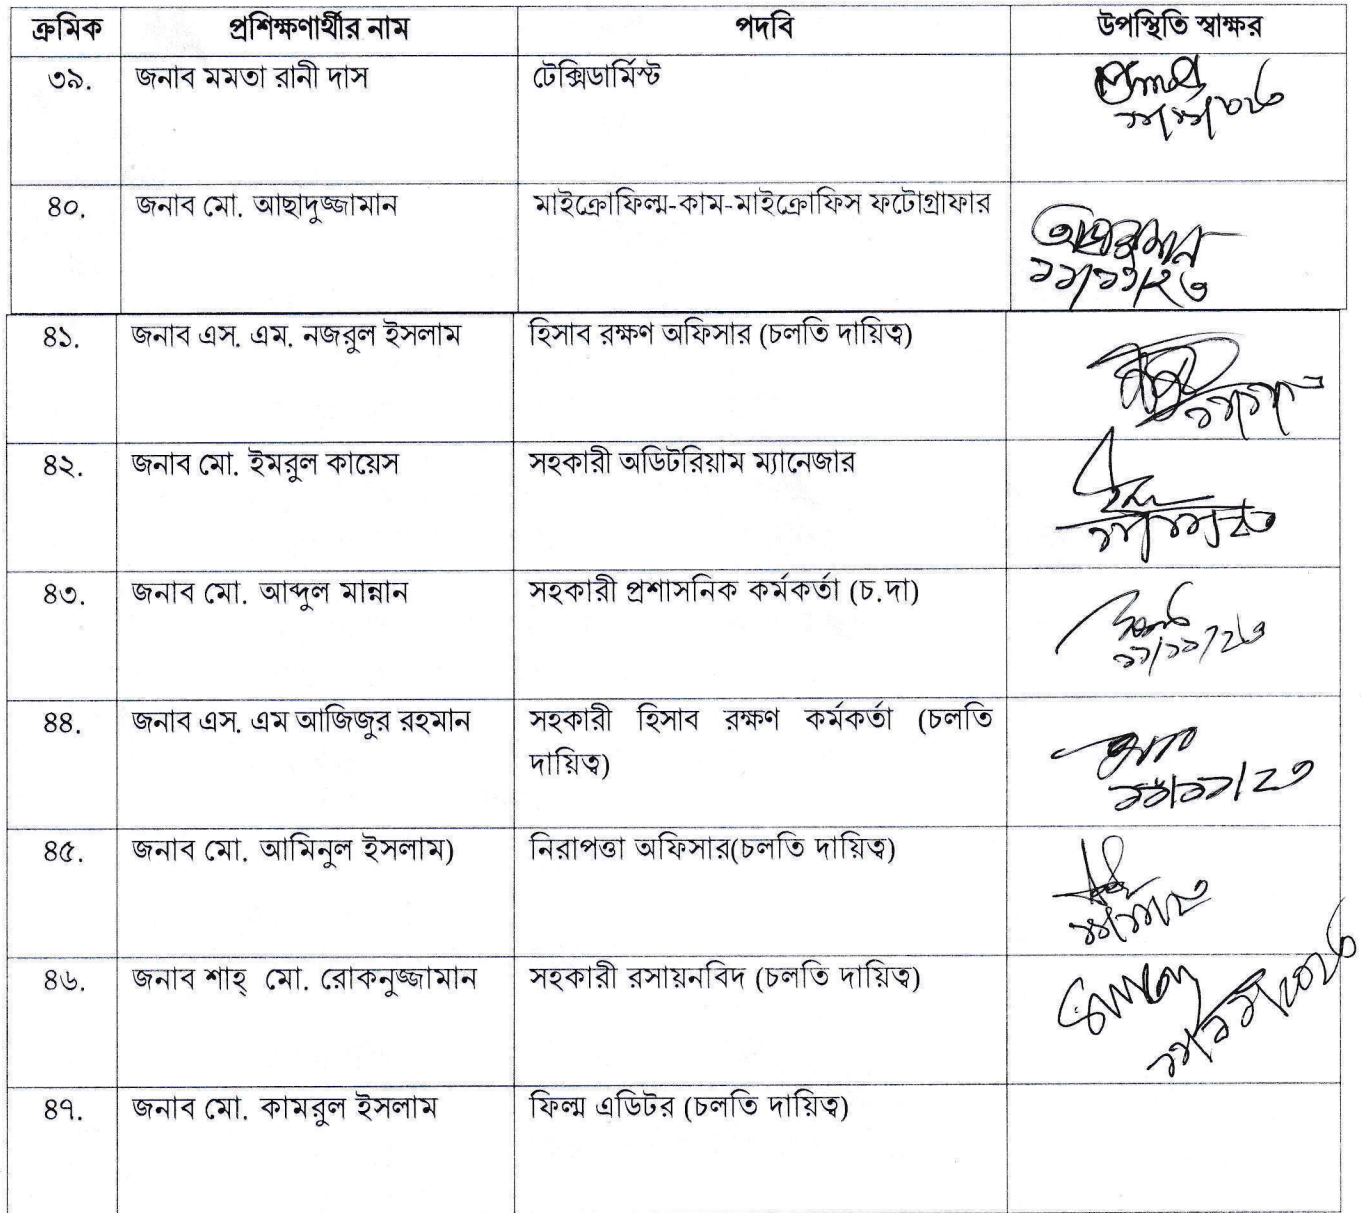 ক্রমিক প্রশিক্ষণার্থীর নাম পদবি উপস্থিতি স্বাক্ষর
৩৯. জনাব মমতা রানী দাস টেক্সিডার্মিস্ট
৪০. জনাব মো. আছাদুজ্জামান মাইক্রোফিল্ম-কাম-মাইক্রোফিস ফটোগ্রাফার
১১/১১/২৩
৪১. জনাব এস. এম. নজরুল ইসলাম হিসাব রক্ষণ অফিসার (চলতি দায়িত্ব)
৪২. জনাব মো. ইমরুল কায়েস সহকারী অডিটরিয়াম ম্যানেজার
৪৩. জনাব মো. আব্দুল মান্নান সহকারী প্রশাসনিক কর্মকর্তা (চ.দা)
১১/১১/২৩
৪৪. জনাব এস. এম আজিজুর রহমান সহকারী হিসাব রক্ষণ কর্মকর্তা (চলতি
দায়িত্ব)
১১/১১/২৩
৪৫. জনাব মো. আমিনুল ইসলাম) নিরাপত্তা অফিসার(চলতি দায়িত্ব)
৪৬. জনাব শাহ্ মো. রোকনুজ্জামান সহকারী রসায়নবিদ (চলতি দায়িত্ব)
৪৭. জনাব মো. কামরুল ইসলাম ফিল্ম এডিটর (চলতি দায়িত্ব)